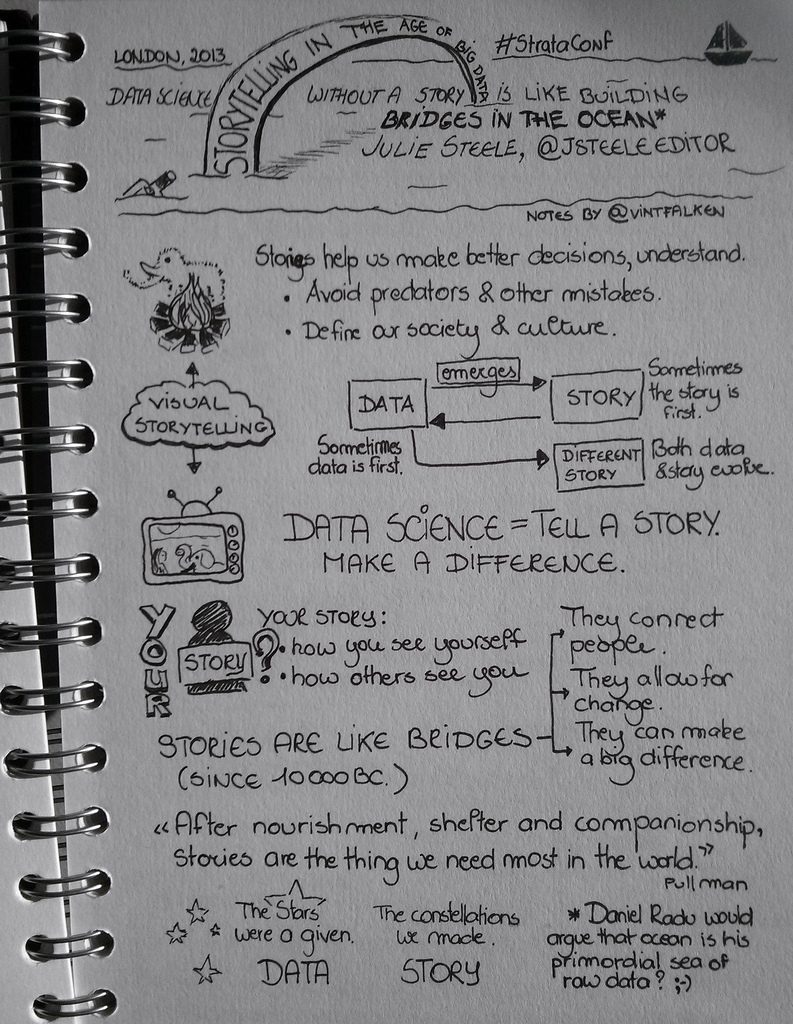 LONDON, 2013
STORYTELLING IN THE AGE OF BIG DATA
#StrataConf
DATA SCIENCE WITHOUT A STORY IS LIKE BUILDING
BRIDGES IN THE OCEAN*
JULIE STEELE, @JSTEELEEDITOR
NOTES BY @VINTFALKEN
Stories help us make better decisions, understand.
• Avoid predators & other mistakes.
• Define our society & culture.
VISUAL
STORYTELLING
DATA
emerges
STORY
Sometimes
the story is
first.
Sometimes
data is first.
DIFFERENT
STORY
Both data
& story evolve.
DATA SCIENCE = TELL A STORY.
MAKE A DIFFERENCE.
YOUR
STORY
?
YOUR STORY:
• how you see yourself
• how others see you
STORIES ARE LIKE BRIDGES
(SINCE 10000BC.)
They connect
people.
They allow for
change.
They can make
a big difference.
"After nourishment, shelter and companionship,
stories are the thing we need most in the world."
Pullman
The Stars
were a given.
DATA
The constellations
we made.
STORY
* Daniel Radu would
argue that ocean is his
primordial sea of
raw data? ;-)